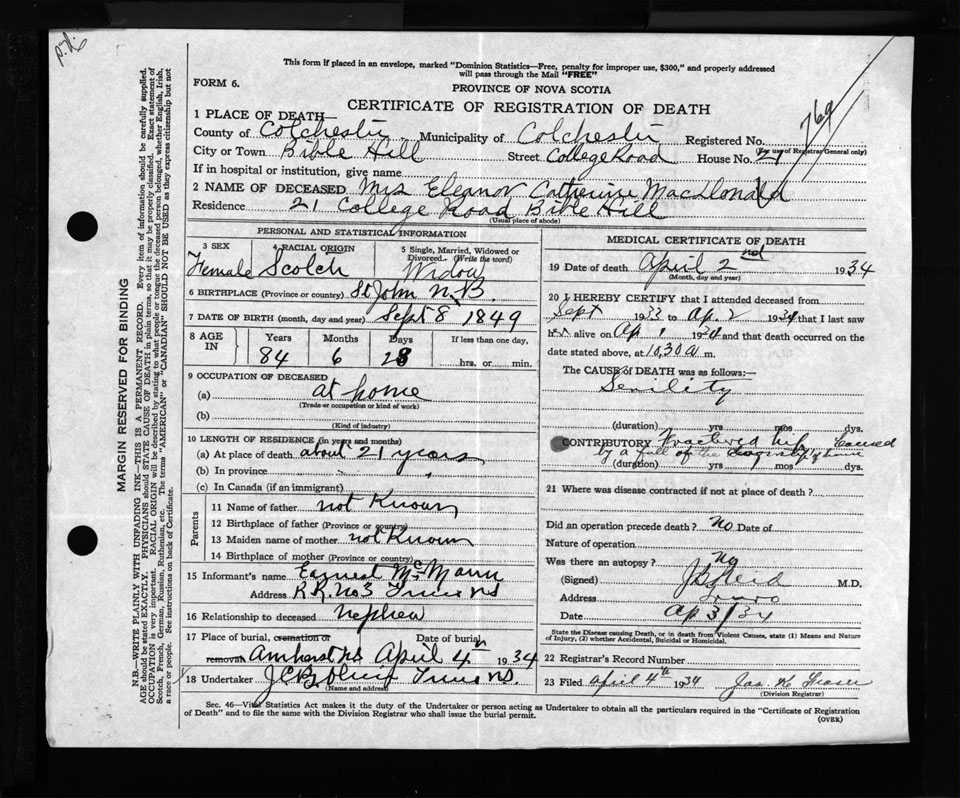 This form if placed in an envelope, marked "Dominion Statistics—Free, penalty for improper use, $300," and properly addressed
will pass through the Mail "FREE"
FORM 6.
PROVINCE OF NOVA SCOTIA
CERTIFICATE OF REGISTRATION OF DEATH
769
1 PLACE OF DEATH—
County of Colchester Municipality of Colchester Registered No.
(For use of Registrar General only)
City or Town Bible Hill Street College Road House No. 21
If in hospital or institution, give name
2 NAME OF DECEASED Mrs Eleanor Catherine MacDonald
Residence 21 College Road Bible Hill
(Usual place of abode)
MARGIN RESERVED FOR BINDING
N.B.—WRITE PLAINLY WITH UNFADING INK—THIS IS A PERMANENT RECORD. Every item of information should be carefully supplied.
AGE should be stated EXACTLY. PHYSICIANS should STATE CAUSE OF DEATH in plain terms, so that it may be properly classified. Exact statement of
OCCUPATION is very important. RACIAL ORIGIN will be described by stating to what people or tongue the deceased person belonged, whether English, Irish,
Scotch, French, German, Russian, Ruthenian, etc. The terms "AMERICAN" or "CANADIAN" SHOULD NOT BE USED as they express citizenship but not
a race or people. See instructions on back of Certificate.
PERSONAL AND STATISTICAL INFORMATION
3 SEX 4 RACIAL ORIGIN 5 Single, Married, Widowed or
Divorced. (Write the word)
Female Scotch Widow
6 BIRTHPLACE (Province or country) St John N.B.
7 DATE OF BIRTH (month, day and year) Sept 8 1849
8 AGE IN Years Months Days If less than one day,
84 6 28 hrs. or min.
9 OCCUPATION OF DECEASED
(a) at home
(Trade or occupation or kind of work)
(b)
(Kind of industry)
10 LENGTH OF RESIDENCE (in years and months)
(a) At place of death about 21 years
(b) In province
(c) In Canada (if an immigrant)
Parents
11 Name of father not Known
12 Birthplace of father (Province or country)
13 Maiden name of mother not Known
14 Birthplace of mother (Province or country)
15 Informant's name Earnest McMann
Address R.R. No 3 Truro NS
16 Relationship to deceased nephew
17 Place of burial, cremation or Date of burial
removal Amherst NS April 4th 1934
18 Undertaker Truro NS.
(Name and address)
MEDICAL CERTIFICATE OF DEATH
19 Date of death April 2nd 1934
(Month, day and year)
20 I HEREBY CERTIFY that I attended deceased from
Sept 1933 to Ap. 2 1934 that I last saw
her alive on Ap 1 1934 and that death occurred on
date stated above, at 10.30 a m.
The CAUSE of DEATH was as follows:—
Senility
(duration) yrs mos dys.
CONTRIBUTORY Fractured hip, caused
by a fall of the doorstep of home
(duration) yrs mos dys.
21 Where was disease contracted if not at place of death?
Did an operation precede death? No Date of
Nature of operation
Was there an autopsy? No
(Signed) M.D.
Address Truro
Date Ap 3/34
State the Disease causing Death, or in death from Violent Causes, state (1) Means and Nature
of Injury, (2) whether Accidental, Suicidal or Homicidal.
22 Registrar's Record Number
23 Filed April 4th 1934 Jas. K. Fraser
(Division Registrar)
Sec. 46—Vital Statistics Act makes it the duty of the Undertaker or person acting as Undertaker to obtain all the particulars required in the "Certificate of Registration
of Death" and to file the same with the Division Registrar who shall issue the burial permit.
(OVER)